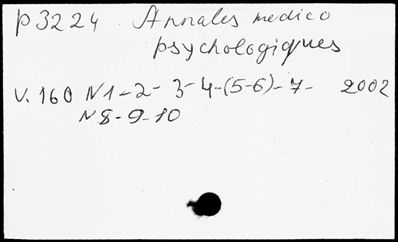 P3224 Annales medico
psychologiques
V. 160 N1-2- 3-4-(5-6)-7- 2002
N8-9-10